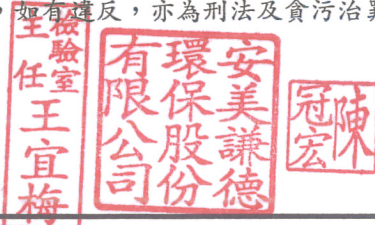 ，如有違反，亦為刑法及貪污治罪
檢驗室
主任
王宜梅
安美謙德
環保股份
有限公司
陳
冠宏